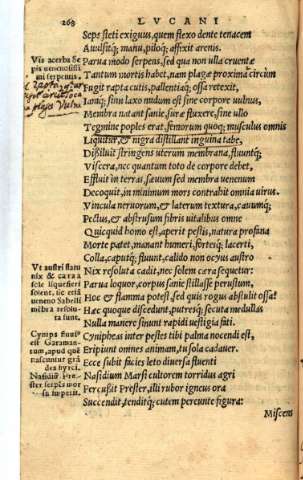 268 LVCANI
Seps stetit exiguus, quem flexo dente tenacem
Auulsitq; manu, piloq; affixit arenis.
Parua modo serpens, sed qua non ulla cruentæ
Tantum mortis habet, nam plagæ proxima circùm
Fugit rapta cutis, pallentiaq; ossa retexit,
Iamq; sinu laxo nudum est sine corpore uulnus,
Membra natant sanie, suræ fluxere, sine ullo
Tegmine poples erat, femorum quoq; musculus omnis
Liquitur, & nigra distillant inguina tabe,
Dißiluit stringens uterum membrana, fluuntq;
Viscera, nec quantum toto de corpore debet,
Effluit in terras, sæuum sed membra uenenum
Decoquit, in minimum mors contrahit omnia uirus.
Vincula neruorum, & laterum textura, cauumq;
Pectus, & abstrusum fibris uitalibus omne
Quicquid homo est, aperit pestis, natura profana
Morte patet, manant humeri, fortesq; lacerti,
Colla, caputq; fluunt, calido non ocyus austro
Nix resoluta cadit, nec solem cæra sequetur.
Parua loquor, corpus sanie stillasse perustum,
Hoc & flamma potest, sed quis rogus abstulit ossa?
Hæc quoque discedunt, putresq; secuta medullas
Nulla manere sinunt rapidi uestigia fati.
Cyniphias inter pestes tibi palma nocendi est,
Eripiunt omnes animam, tu sola cadauer.
Ecce subit facies leto diuersa fluenti
Nasidium Marsi cultorem torridus agri
Percußit Prester, illi rubor igneus ora
Succendit, tenditq; cutem pereunte figura:
Miscens
Vis acerba Se
pis uenenosissi
mi serpentis.
Vt austri flatu
nix & cæra a
sole liquefieri
solent, sic eius
ueneno Sabelli
membra reso-
luta sunt.
Cynips fluui9
est Garaman-
tum, apud quē
nascuntur grā
des hyrci.
Nasidiū Pre-
ster serpēs mor
su imperit.